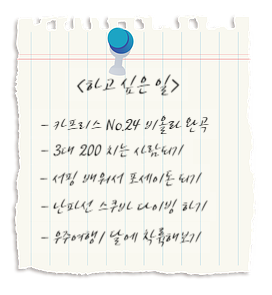 <하고 싶은 일>
- 카프리스 No.24 비올라 완곡
- 3대 200 치는 사람되기
- 서핑 배워서 포세이돈 되기
- 난파선 스쿠바 다이빙 하기
- 우주여행/ 달에 착륙해보기